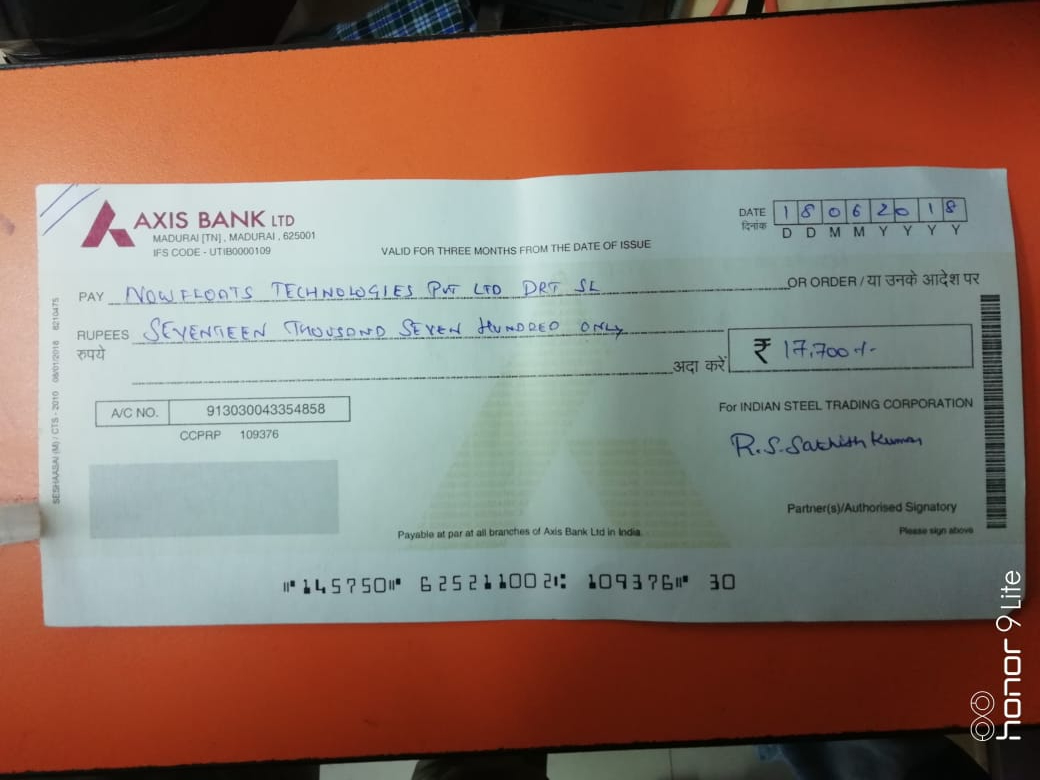 AXIS BANK LTD
MADURAI [TN] , MADURAI , 625001
IFS CODE - UTIB0000109
VALID FOR THREE MONTHS FROM THE DATE OF ISSUE
DATE 18062018
दिनांक D D M M Y Y Y Y
PAY NOWFLOATS TECHNOLOGIES PVT LTD DRT SL OR ORDER / या उनके आदेश पर
RUPEES SEVENTEEN THOUSAND SEVEN HUNDRED ONLY
रुपये अदा करें ₹ 17,700/-
A/C NO. 913030043354858
CCPRP 109376
For INDIAN STEEL TRADING CORPORATION
R.S. Sathish Kumar
Partner(s)/Authorised Signatory
Please sign above
Payable at par at all branches of Axis Bank Ltd in India
⑈145750⑈ 625211002⑆ 109376⑈ 30
SESHAASAI (M) / CTS - 2010 08/01/2018 8210475
honor 9 Lite